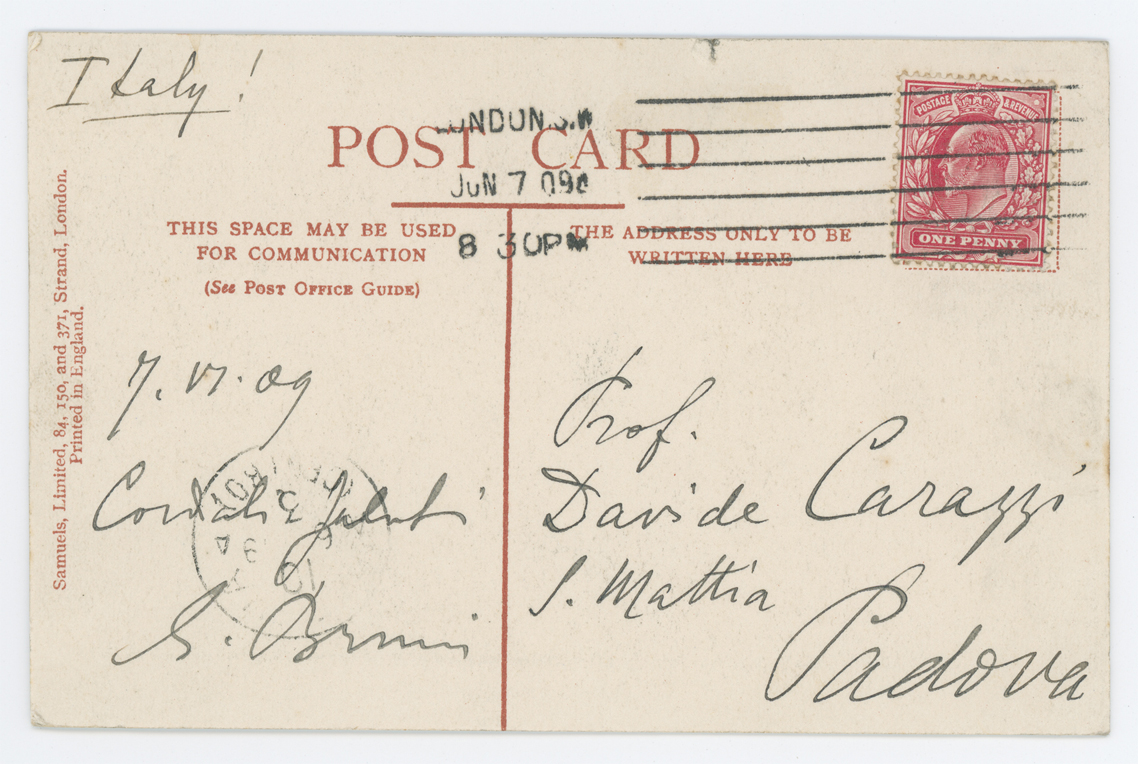 Italy!
POST CARD
LONDON.S.W
JUN 7 09
8 30PM
THIS SPACE MAY BE USED
FOR COMMUNICATION
(See POST OFFICE GUIDE)
THE ADDRESS ONLY TO BE
WRITTEN HERE
POSTAGE & REVENUE
ONE PENNY
Samuels, Limited, 84, 150, and 371, Strand, London.
Printed in England.
7. VI. 09
Cordiali Saluti
G. Brunni
Prof.
Davide Carazzi
S. Mattia
Padova